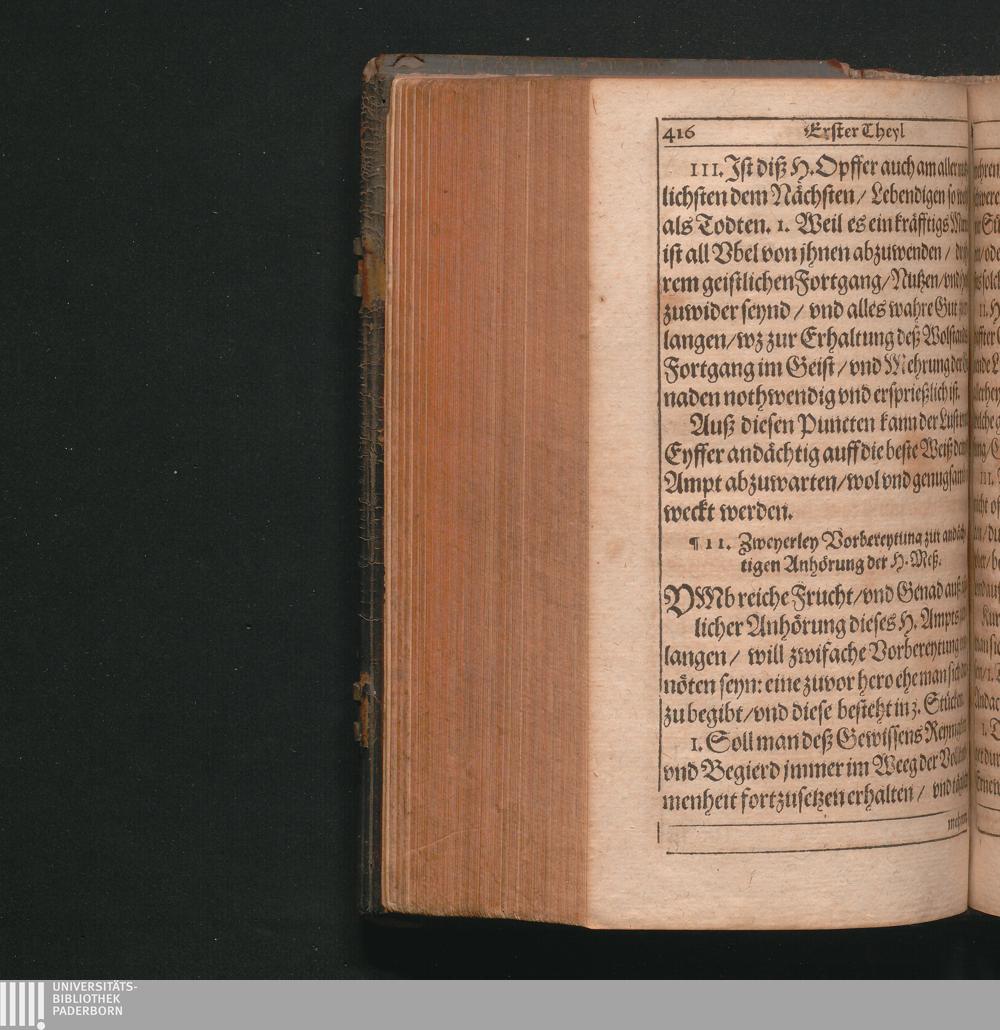 416 Erster Theyl
III. Ist diß H. Opffer auch am aller
lichsten dem Nächsten/ Lebendigen so
als Todten. 1. Weil es ein kräfftigs
ist all Vbel von jhnen abzuwenden /
rem geistlichen Fortgang/Nutzen/vnd
zuwider seynd / vnd alles wahre Gut
langen/wz zur Erhaltung deß Wolstands
Fortgang im Geist / vnd Mehrung der
naden nothwendig vnd ersprießlich ist.
Auß diesen Puncten kann der Lust
Eyffer andächtig auff die beste Weiß
Ampt abzuwarten/wol vnd genugsam
weckt werden.
¶ II. Zweyerley Vorbereytung zur andäch
tigen Anhörung der H. Meß.
VMb reiche Frucht/vnd Genad auß
licher Anhörung dieses H. Ampts
langen / will zwifache Vorbereytung
nöten seyn: eine zuvor hero ehe man sich
zu begibt/vnd diese besteht in 3. Stücken.
1. Soll man deß Gewissens
vnd Begierd jmmer im Weeg der
menheit fortzusetzen erhalten / vnd
UNIVERSITÄTS-
BIBLIOTHEK
PADERBORN